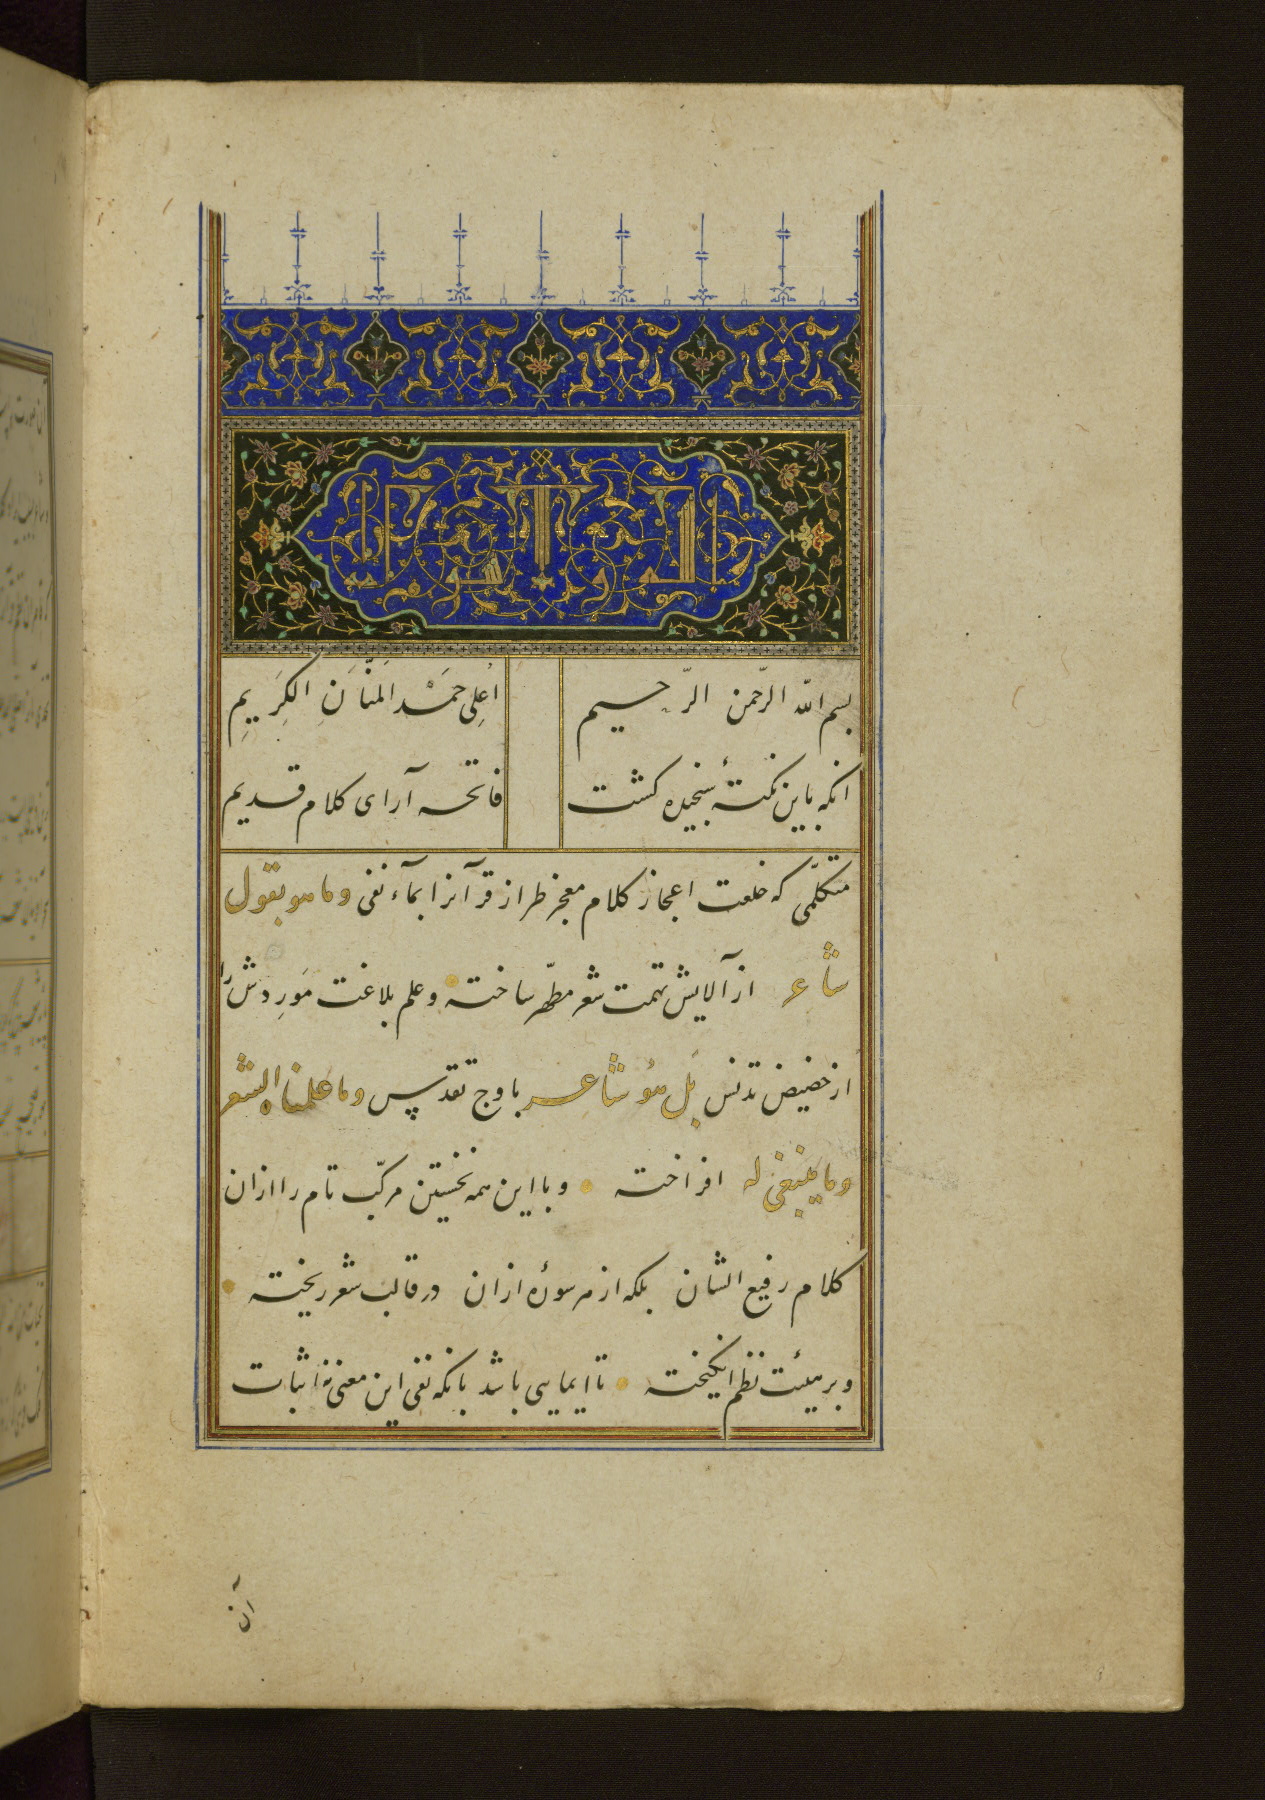 بسم الله الرّحمن الرّحیم
اُعلِی حَمْدَ المَنَّانِ الکَرِیمِ
انکه باین نکتهٔ سنجیده کشت
فاتحه آرای کلام قدیم
متکلّمی که خلعت اعجاز کلام معجز طراز قرآنرا بماء نفی وما هو بقول
شاعر از آلایش تهمت شعر مطهّر ساخته وعلم بلاغت مَورِدش را
از حضیض تدنس بَل هُو شاعر باوج تقدیس وما علمناه الشعر
وما ینبغی له افراخته وبا این همه نخستین مرکّب تام را ازان
کلام رفیع الشان بلکه از هر سورهٔ ازان در قالب شعر ریخته
وبر هیئت نظم انکیخته تا ایمایی باشد بانکه نفی این معنی نه اثبات
آن